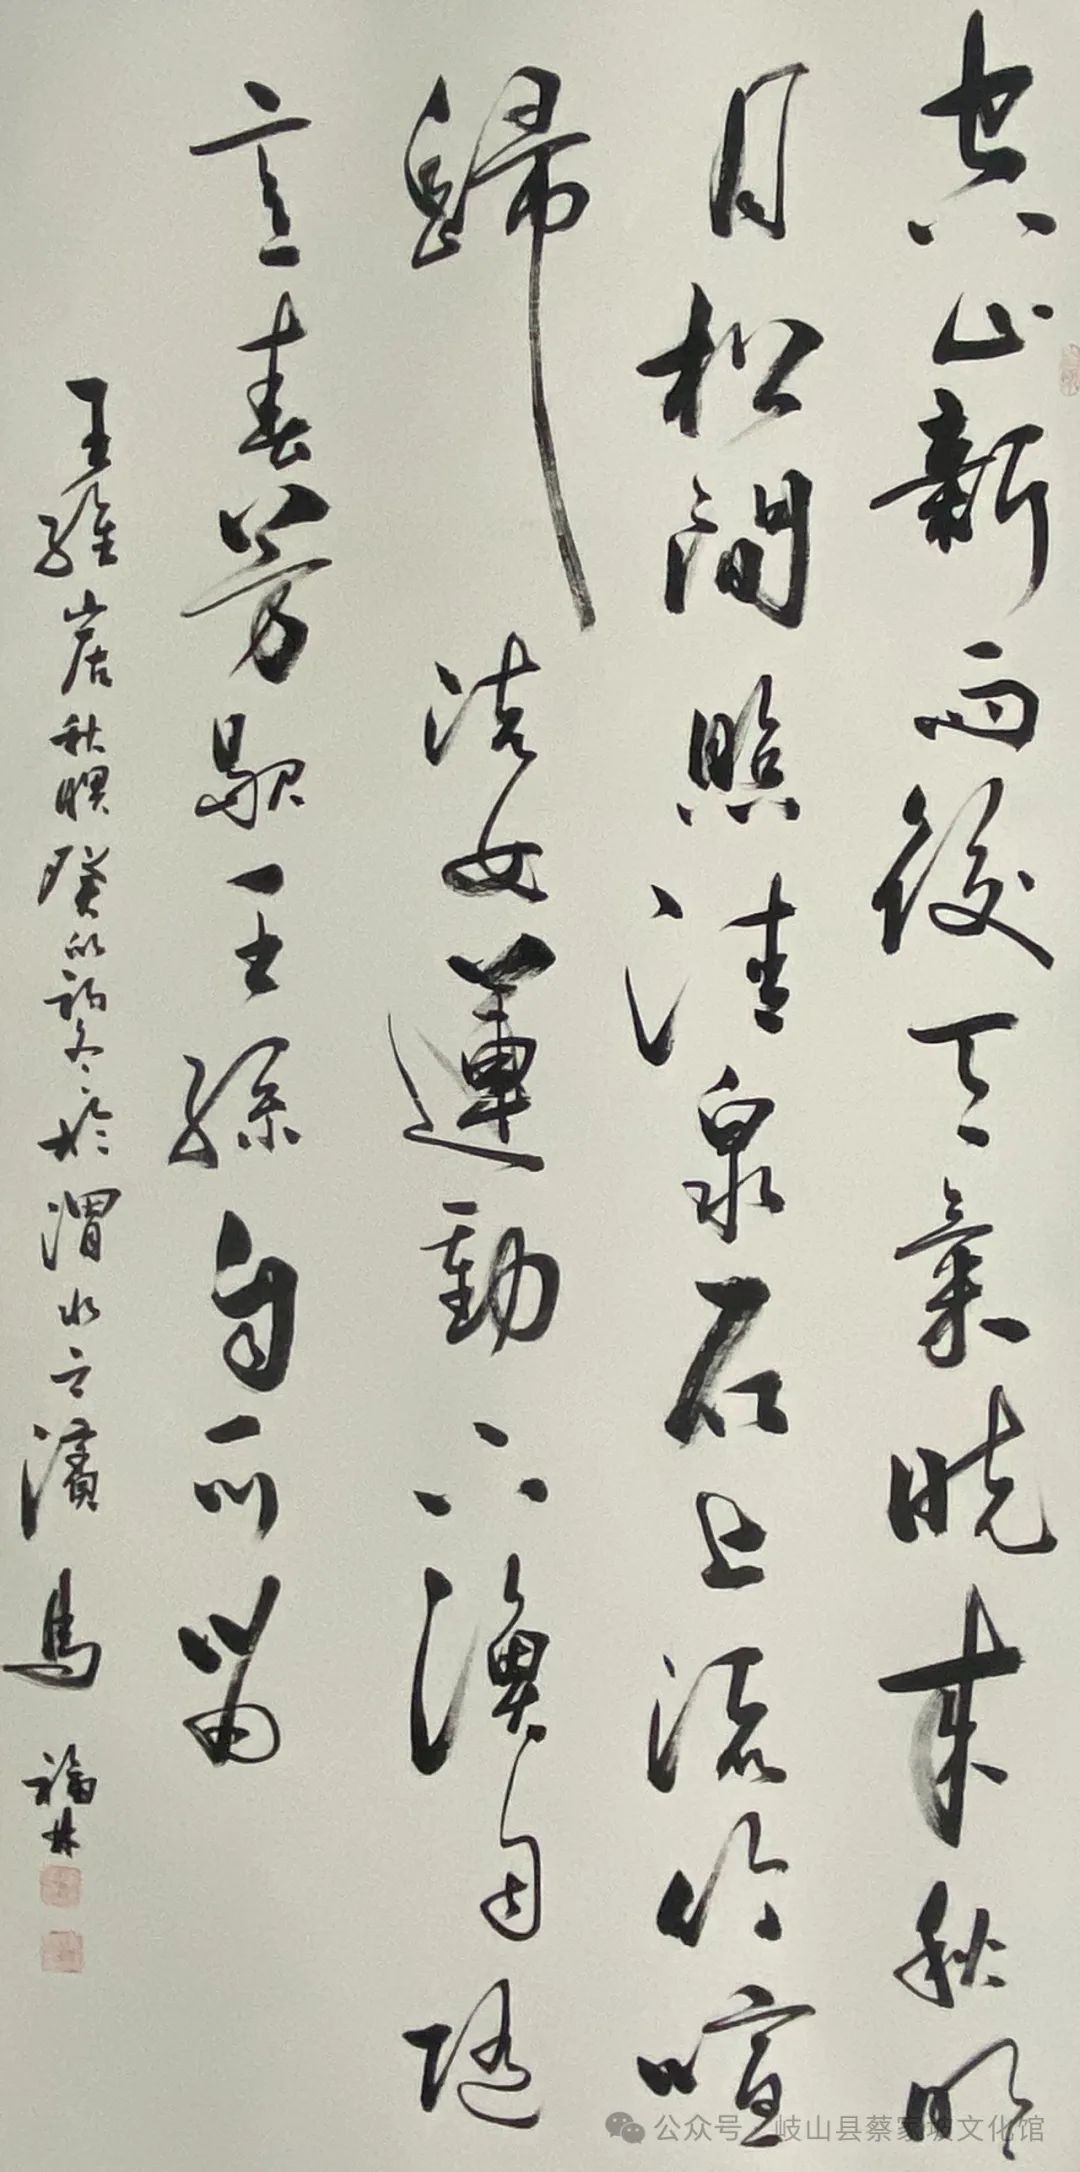 空山新雨後天氣晚來秋明
月松間照清泉石上流竹喧
歸浣女蓮動下漁舟随
意春芳歇王孫自可留
王維山居秋暝癸卯初冬於渭水之濱馬福林
公众号·岐山县蔡家坡文化馆